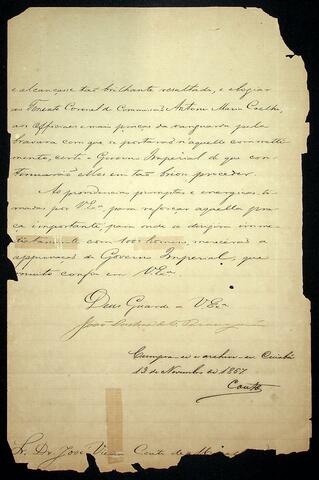 e alcançasse tão brilhante resultado, e elogiar
ao Tenente Coronel de Commissão Antonio Maria Coelho,
aos Officiaes e mais praças da vanguarda pela
bravura com que se portarão n'aquelle commetti-
mento, certo o Governo Imperial de que con-
tinuarão elles em tão bom proceder.
As providencias promptas e energicas to-
madas por VExª para reforçar aquella pra
ça importante, para onde se dirigiu imme
diatamente com 1000 homens, merecerão a
approvação do Governo Imperial, que
muito confia em VExª.
Deus Guarde a VExª
João Lustosa da Paranaguá
Cumpra-se e archive-se Cuiabá
13 de Novembro de 1867
Couto
Sr. Dr. José Vieira Couto de